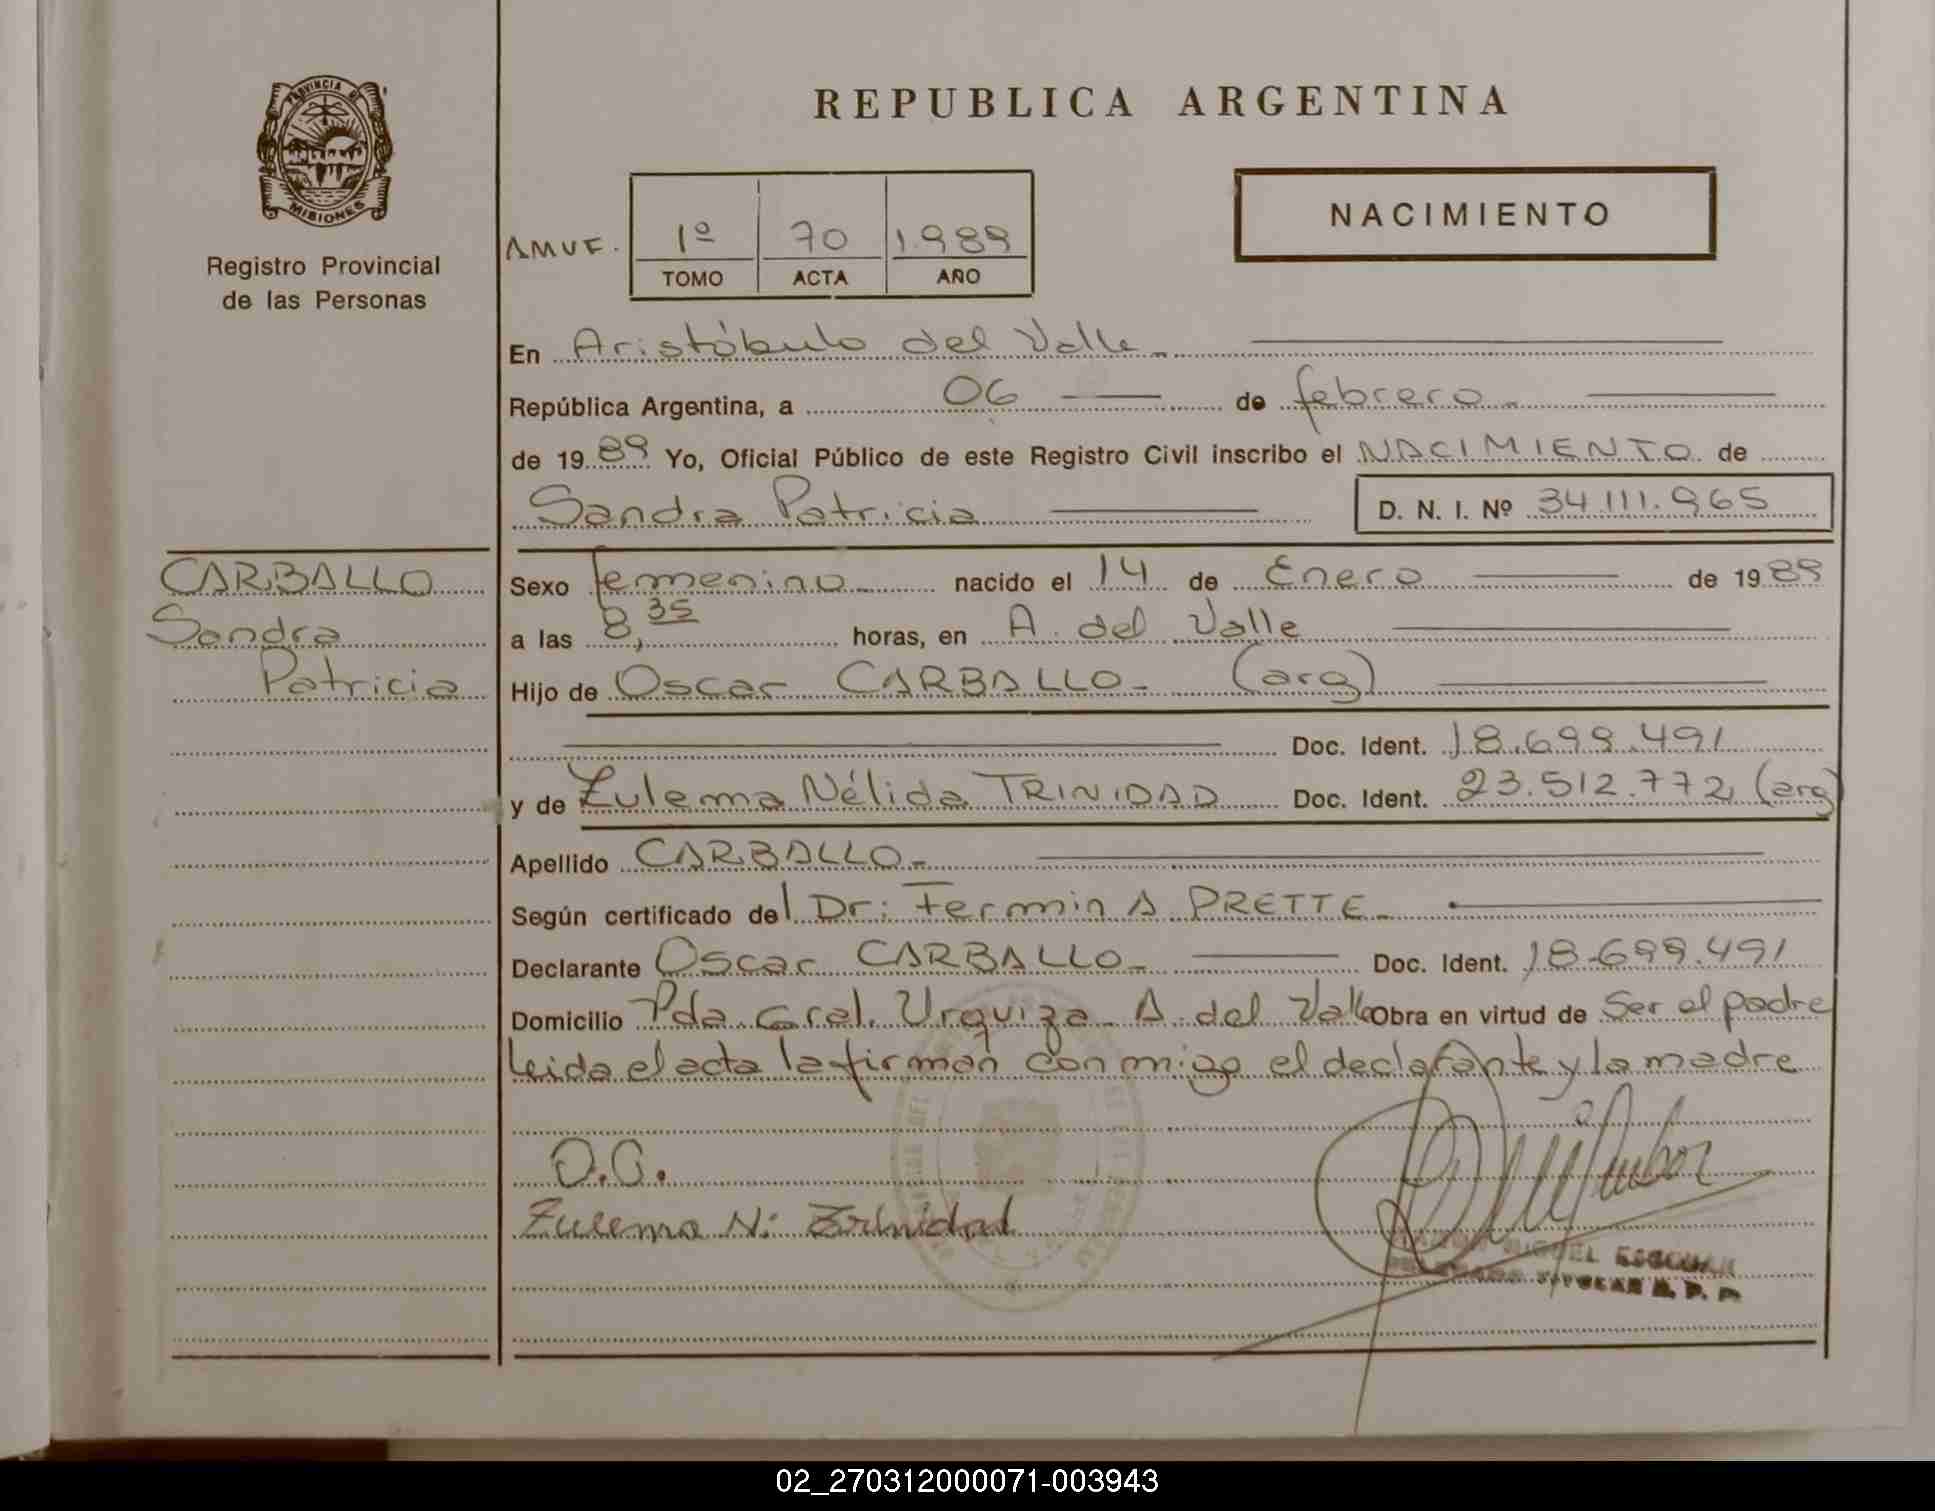 PROVINCIA DE
MISIONES
Registro Provincial
de las Personas
REPUBLICA ARGENTINA
NACIMIENTO
AMUF.
1º 70 1.989
TOMO ACTA AÑO
En Aristóbulo del Valle
República Argentina, a 06 de febrero
de 1989 Yo, Oficial Público de este Registro Civil inscribo el NACIMIENTO de
Sandra Patricia D. N. I. Nº 34.111.965
CARBALLO
Sandra
Patricia
Sexo femenino nacido el 14 de Enero de 1989
a las 8,35 horas, en A. del Valle
Hijo de Oscar CARBALLO (arg)
Doc. Ident. 18.699.491
y de Zulema Nélida TRINIDAD Doc. Ident. 23.512.772 (arg)
Apellido CARBALLO
Según certificado del Dr: Fermin A PRETTE
Declarante Oscar CARBALLO Doc. Ident. 18.699.491
Domicilio Pda. Gral. Urquiza A. del Valle Obra en virtud de Ser el padre
leida el acta la firman con migo el declarante y la madre
O.C.
Zulema N: Trinidad
MIGUEL ESCOBAR
TITULAR R. P. P.
02_270312000071-003943